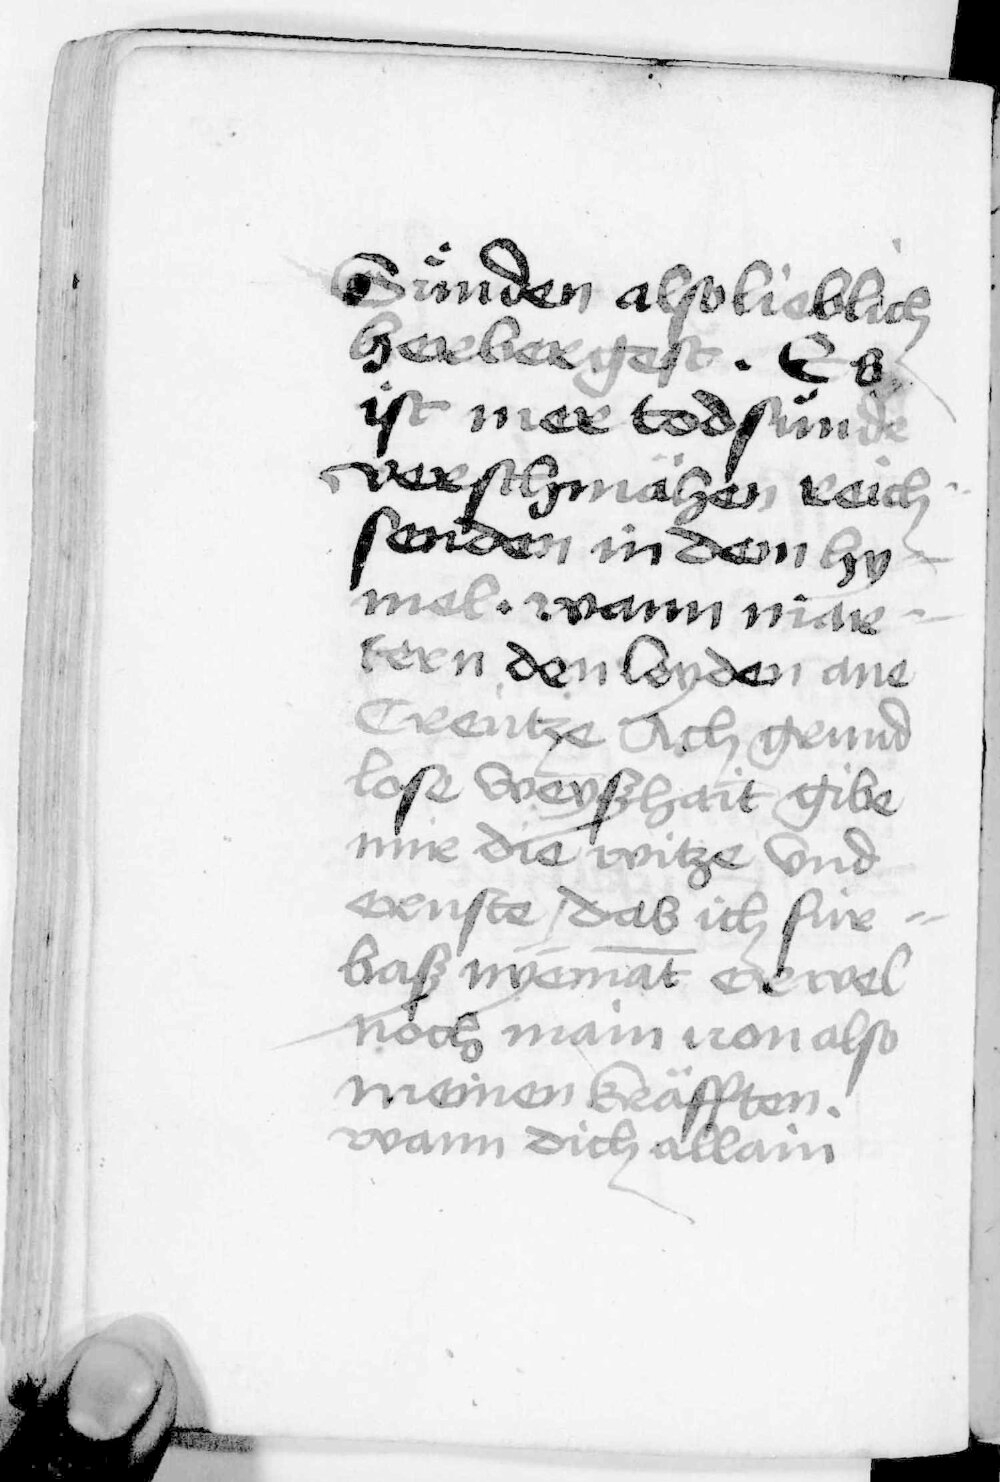 Sünden also lieblich
herbergest. Es
ist mer todsünde
verschmähen reich
senden in dem hy
mel. wann mar=
tern den leyden ane
Creütze Ach grund
lose weyszhait gibe
mir die witze vnd
ernste / das ich für=
basz nyemāt erwel
noch main von also
meinen kräfften.
wann dich allain